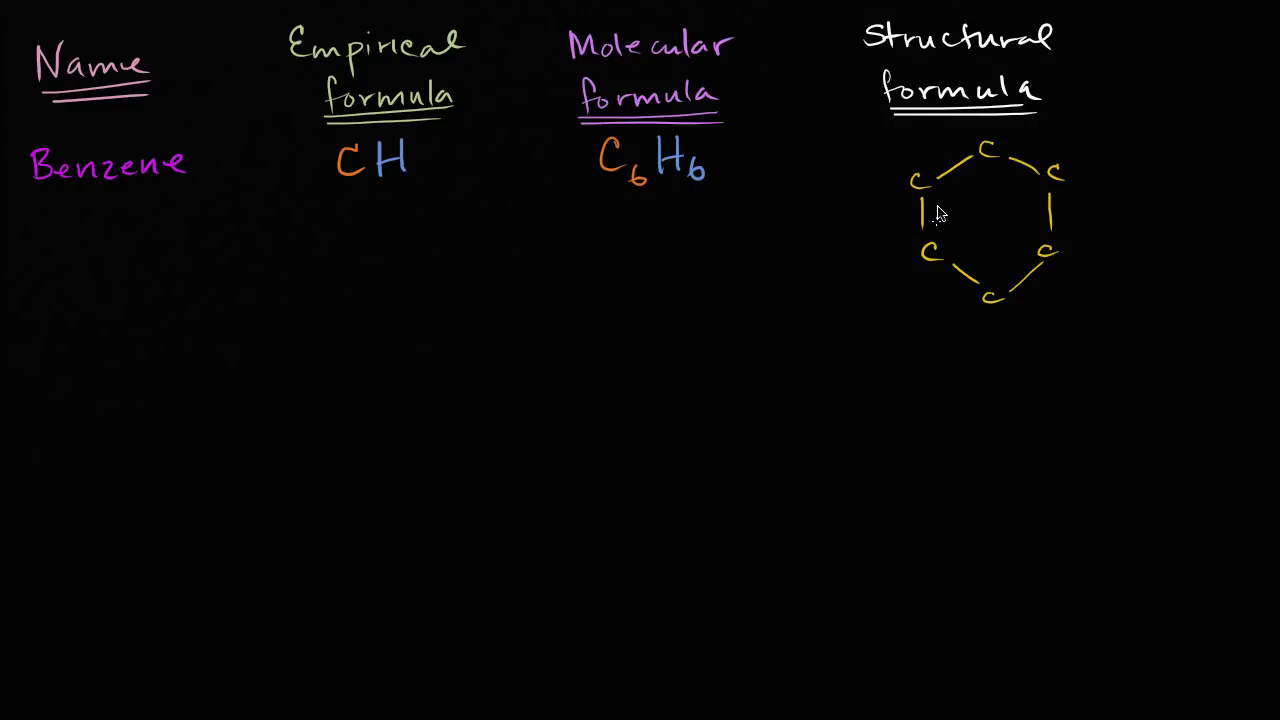 Name
Empirical
formula
Molecular
formula
Structural
formula
Benzene
CH
C6H6
C
C
C
C
C
C